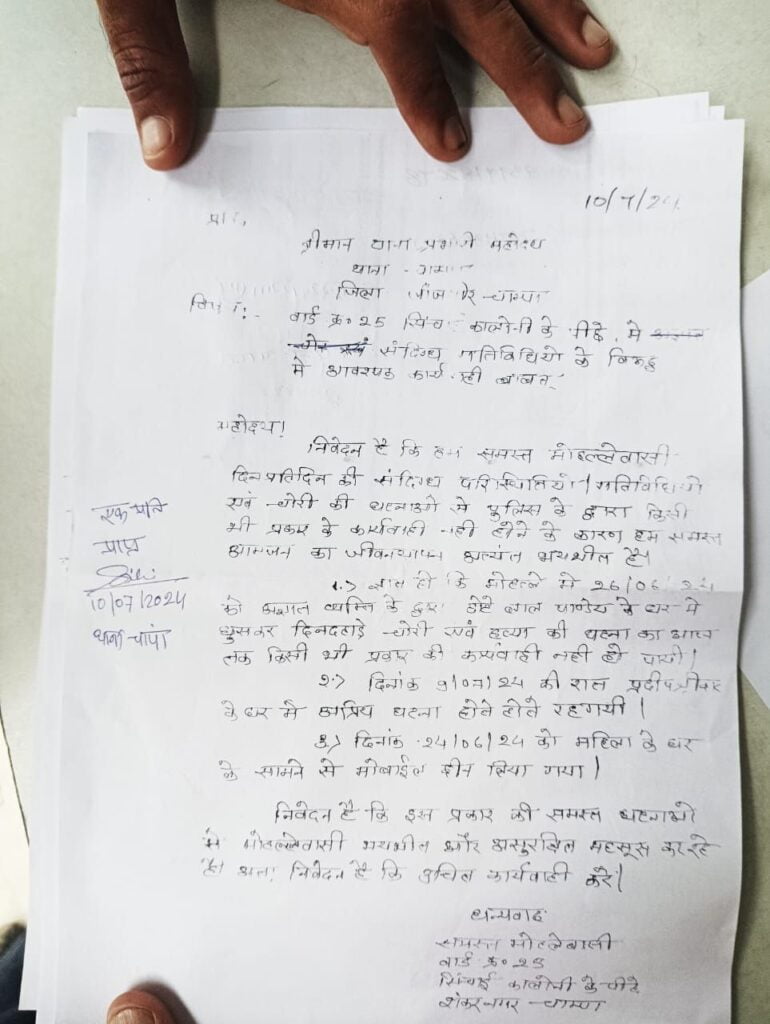 10/7/24
प्रति,
श्रीमान थाना प्रभारी महोदय
थाना -
जिला जांजगीर-चाम्पा
विषय:-
वार्ड क्र० 25 कालोनी के पीछे, मे
संदिग्ध गतिविधियो के विरूद्ध
मे आवश्यक कार्यवाही बाबत्
महोदय!
निवेदन है कि हम समस्त मोहल्लेवासी
दिनप्रतिदिन की संदिग्ध परिस्थितियो/गतिविधियो
एवं चोरी की घटनाओ मे पुलिस के द्वारा किसी
भी प्रकार के कार्यवाही नही होने के कारण हम समस्त
आमजन का जीवनयापन अत्यंत भयभीत है।
1.> ज्ञात हो कि मोहल्ले मे 26/06/24
को अज्ञात व्यक्ति के द्वारा छोटे लाल पाण्डेय के घर मे
घुसकर दिनदहाडे चोरी एवं हत्या की घटना का आज
तक किसी भी प्रकार की कार्यवाही नही हो पायी।
2.> दिनांक 9/07/24 की रात
के घर मे अप्रिय घटना होते होते रहगयी।
3.> दिनांक 24/06/24 को महिला के घर
के सामने से मोबाईल छीन लिया गया।
निवेदन है कि इस प्रकार की समस्त घटनाओ
मे मोहल्लेवासी भयभीत और असुरक्षित महसूस कर रहे
है। अतः निवेदन है कि उचित कार्यवाही करें।
धन्यवाद
समस्त मोहल्लेवासी
वार्ड क्र० 25
सिंचाई कालोनी के पीछे
शंकर नगर चाम्पा
एक प्रति
प्राप्त
10/07/2024
थाना-चांपा